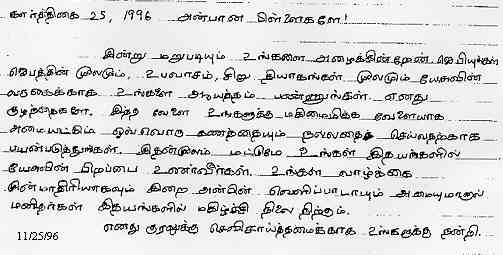 கார்த்திகை 25, 1996 அன்பான பிள்ளைகளே!
இன்று மறுபடியும் உங்களை அழைக்கின்றேன் ஜெபியுங்கள்
ஜெபத்தின் மூலமும், உபவாசம், சிறு தியாகங்கள் மூலமும் யேசுவின்
வருகைக்காக உங்களை ஆயத்தம் பண்ணுங்கள். எனது
குழந்தைகளே. இந்த வேளை உங்களுக்கு மகிமைமிக்க வேளையாக
அமையட்டும் ஒவ்வொரு கணத்தையும் நல்லதைச் செய்வதற்காக
பயன்படுத்துங்கள். இதன்மூலம் மட்டுமே உங்கள் இதயங்களில்
யேசுவின் பிறப்பை உணர்வீர்கள். உங்கள் வாழ்க்கை
முன்மாதிரியாகவும் இறை அன்பின் வெளிப்பாடாயும் அமையுமானால்
மனிதர்கள் இதயங்களில் மகிழ்ச்சி நிலை நிற்கும்.
எனது குரலுக்கு செவிசாய்த்தமைக்காக உங்களுக்கு நன்றி.
11/25/96